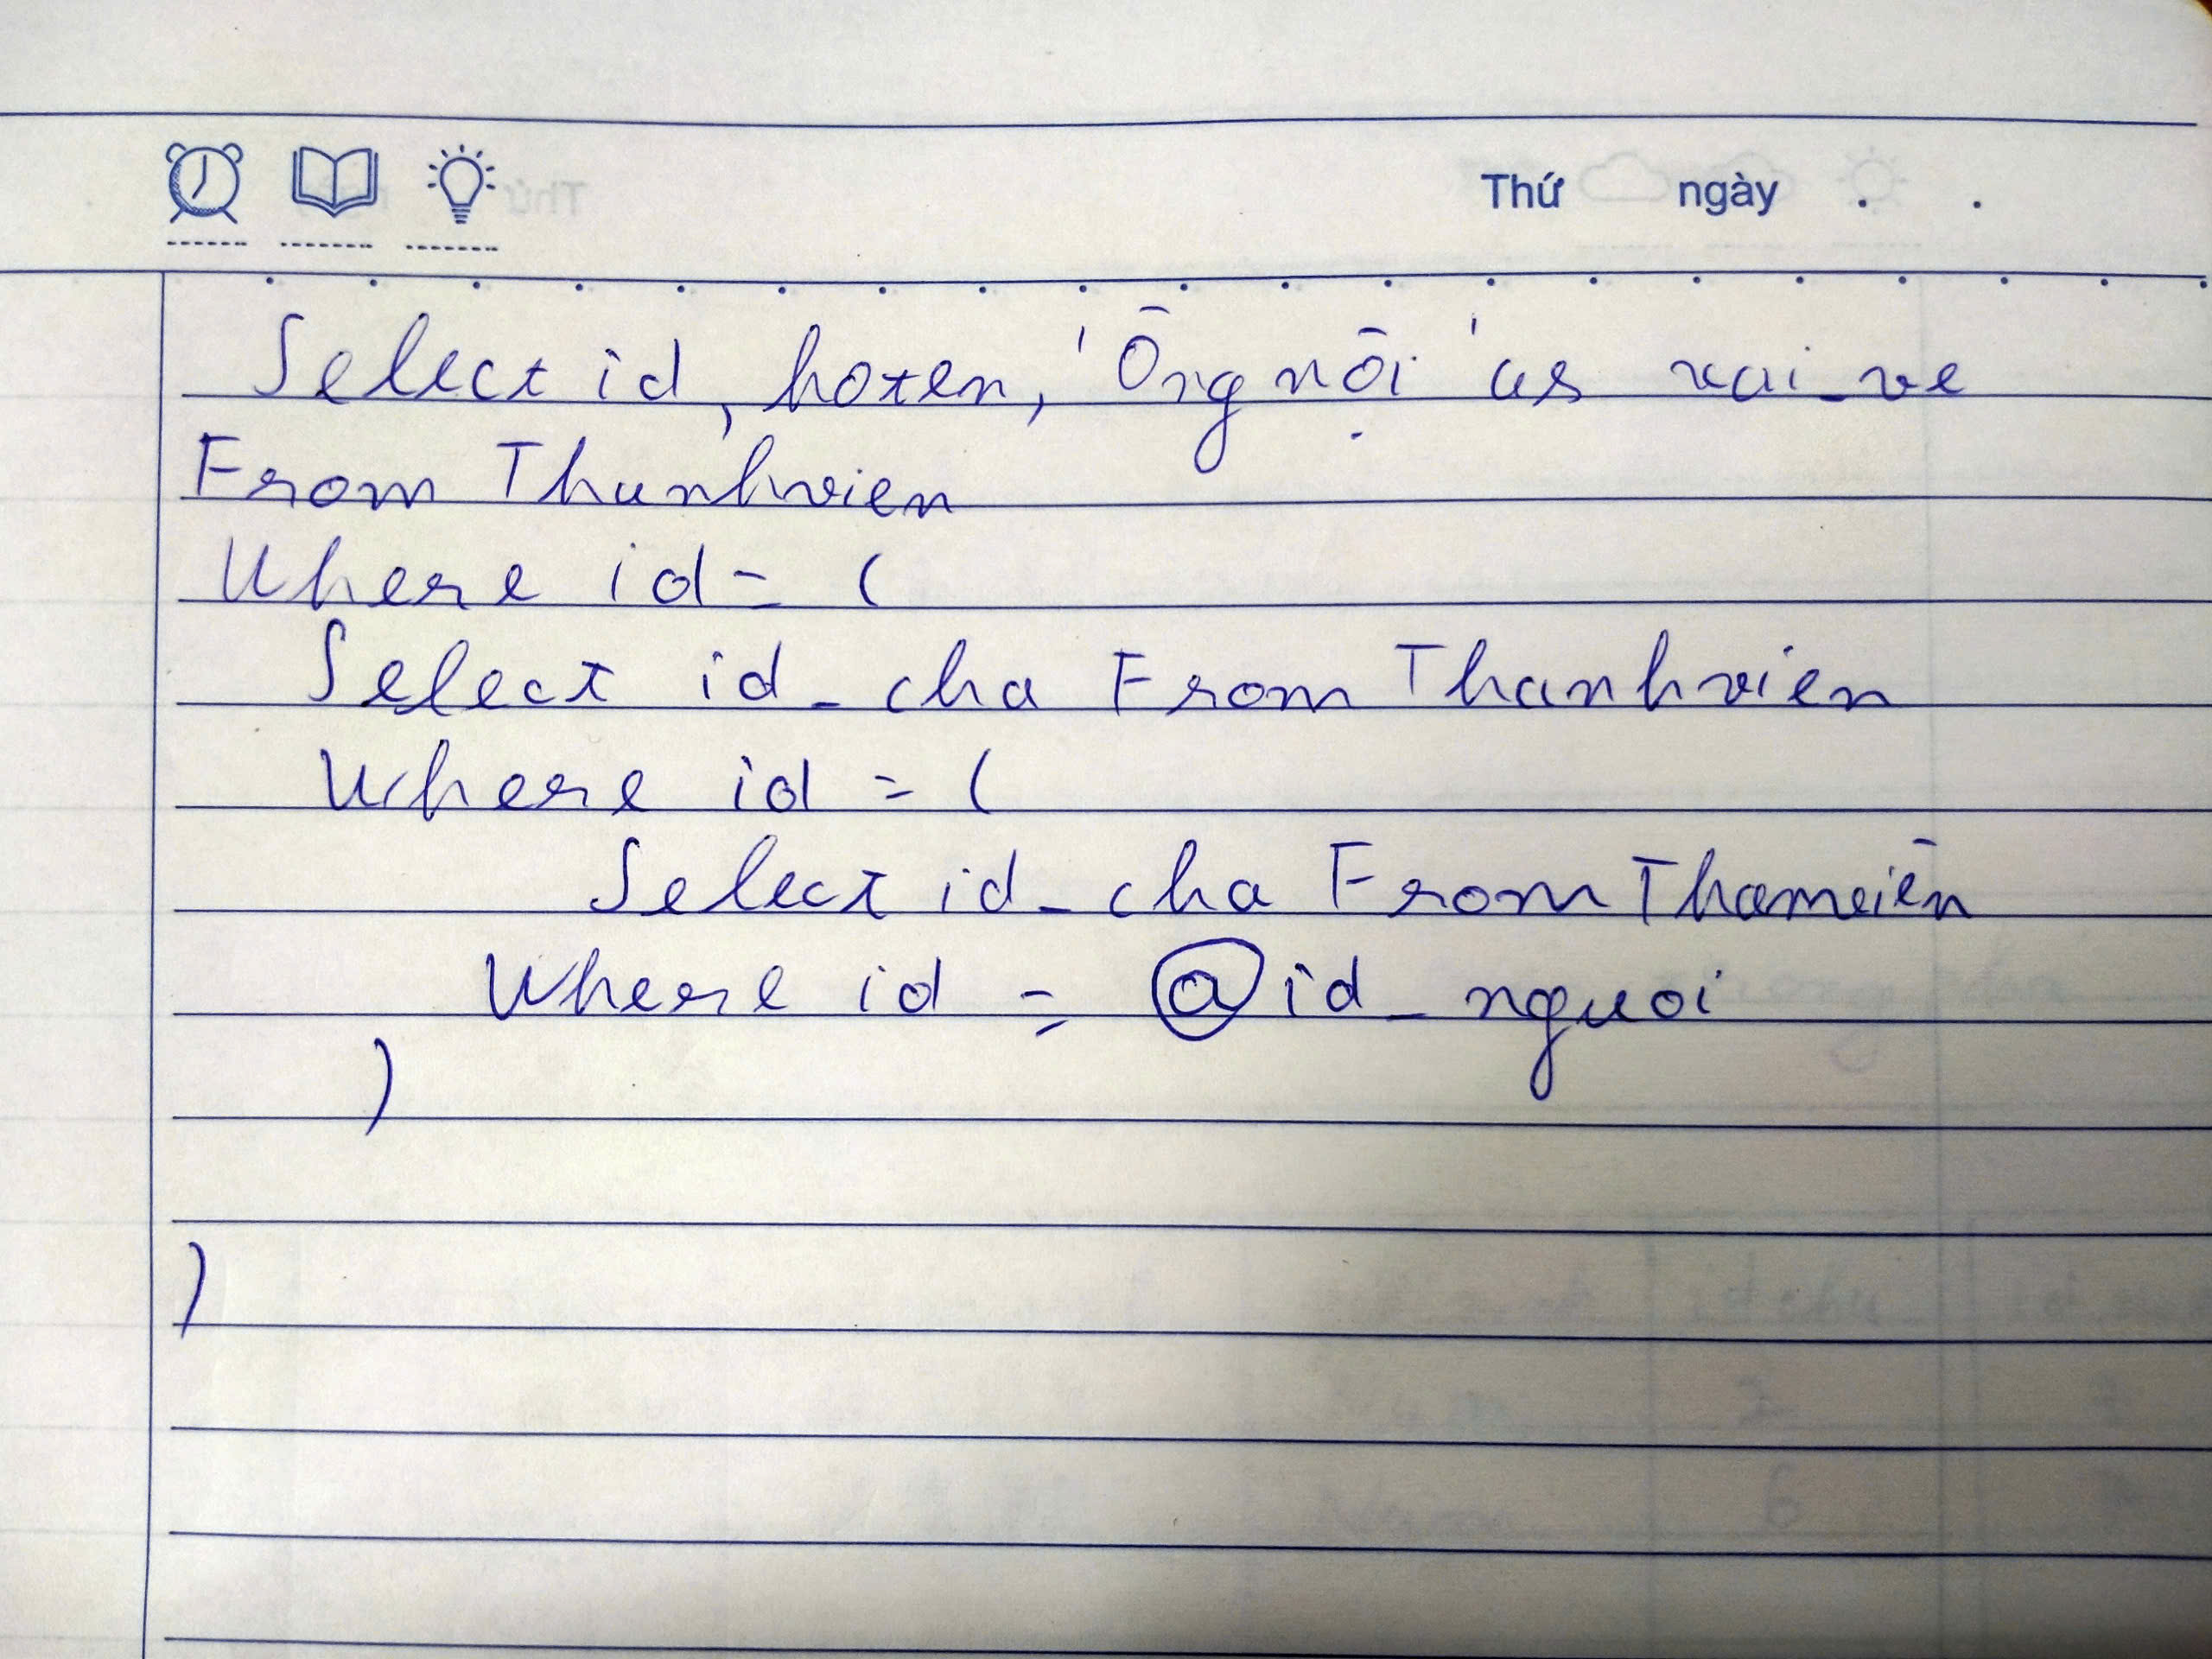 Thứ ngày . .
Select id, hoten, 'Ông nội' as vai_ve
From Thanhvien
Where id = (
Select id_cha From Thanhvien
Where id = (
Select id_cha From
Where id = @id_nguoi
)
)